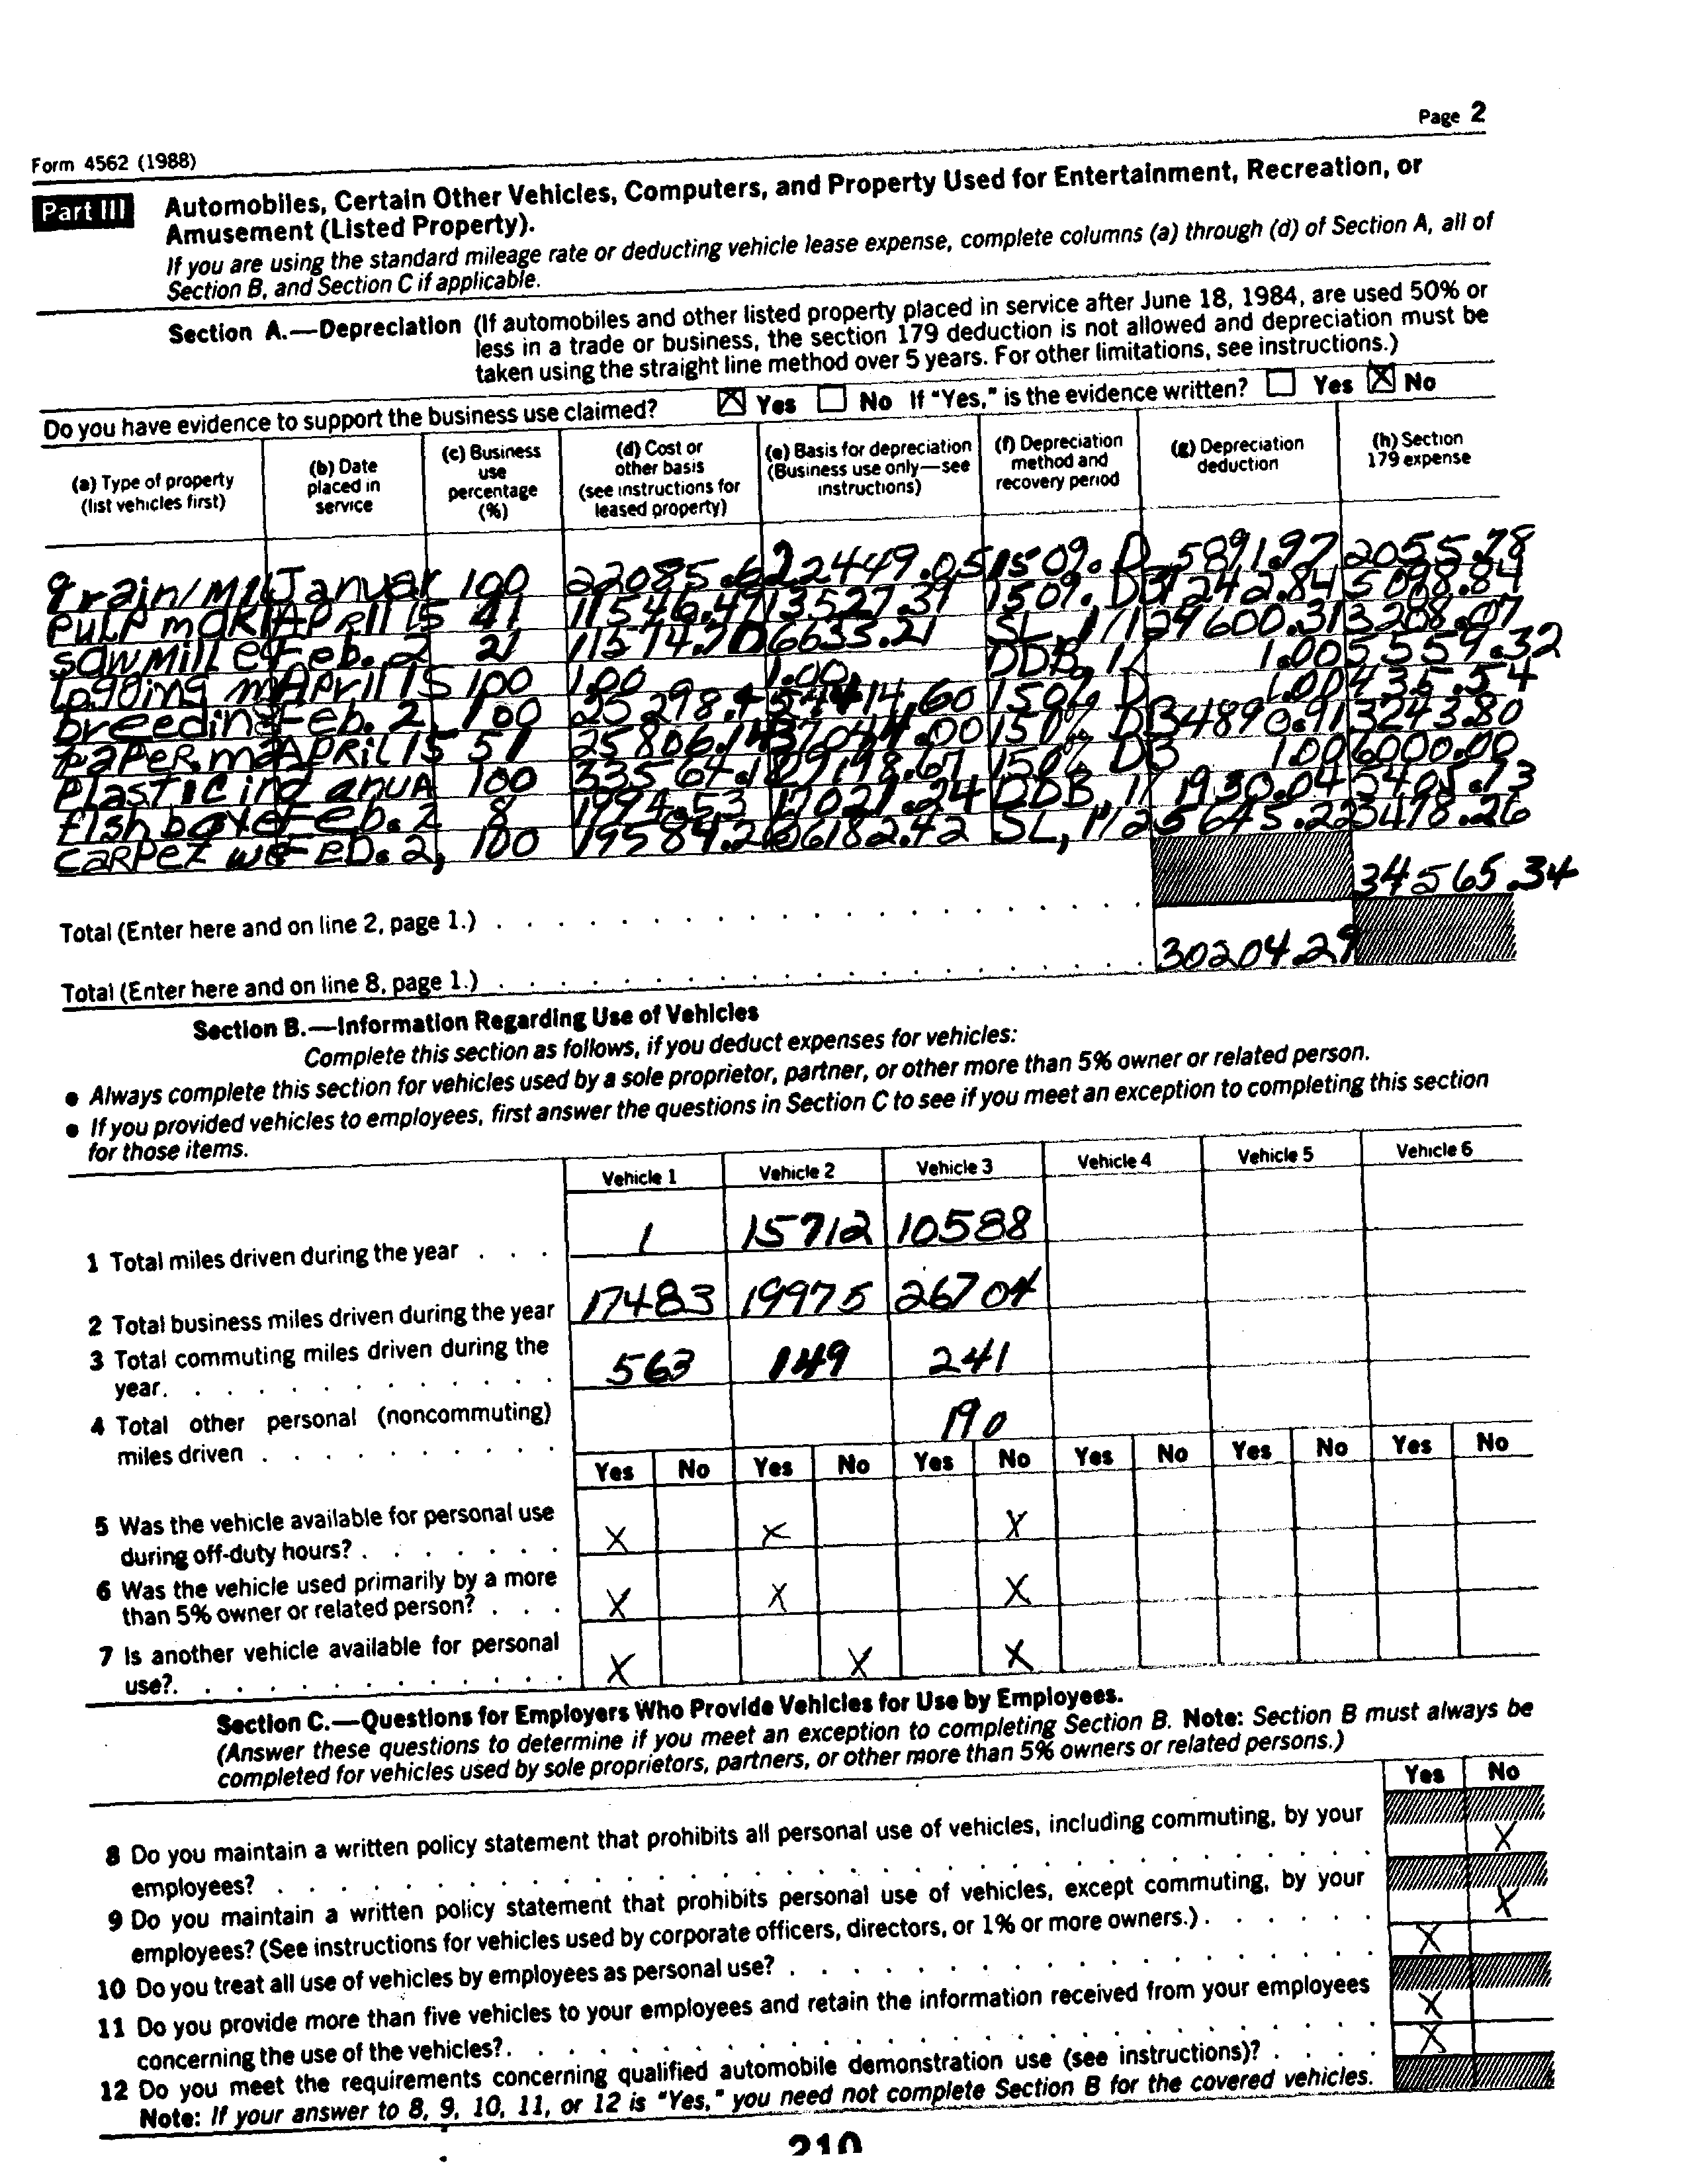 Page 2
Form 4562 (1988)
Part III Automobiles, Certain Other Vehicles, Computers, and Property Used for Entertainment, Recreation, or
Amusement (Listed Property).
If you are using the standard mileage rate or deducting vehicle lease expense, complete columns (a) through (d) of Section A, all of
Section B, and Section C if applicable.
Section A.—Depreciation (If automobiles and other listed property placed in service after June 18, 1984, are used 50% or
less in a trade or business, the section 179 deduction is not allowed and depreciation must be
taken using the straight line method over 5 years. For other limitations, see instructions.)
Do you have evidence to support the business use claimed? X Yes No If "Yes," is the evidence written? Yes X No
(a) Type of property
(list vehicles first)
(b) Date
placed in
service
(c) Business
use
percentage
(%)
(d) Cost or
other basis
(see instructions for
leased property)
(e) Basis for depreciation
(Business use only—see
instructions)
(f) Depreciation
method and
recovery period
(g) Depreciation
deduction
(h) Section
179 expense
grain/mil Januar 100 22085.6 22449.05 150% D 5891.97 2055.78
PULP maki APRIl 15 41 11546.47 13527.37 150% DB 1242.84 5098.84
sawmill eq Feb. 2 21 11574.70 6633.21 SL, 1/12 9600.31 3208.07
Logging m April 15 100 1.00 1.00 DDB, 1/ 1.00 5559.32
breeding Feb. 2, 100 25298.4 54414.60 150% D 1.00 435.54
PaPeR ma APRIL 15 51 25806.14 37044.00 150% DB 34890.91 3243.80
Plastic ind anuA 100 33564.1 29198.67 150% DB 1.00 6000.00
fish boxe Feb. 2 8 1994.53 17021.24 DDB, 1/ 1930.04 3405.73
carpet we Feb. 2, 100 19584.2 6182.42 SL, 1/12 5645.22 3478.26
34565.34
Total (Enter here and on line 2, page 1.)
30204.29
Total (Enter here and on line 8, page 1.)
Section B.—Information Regarding Use of Vehicles
Complete this section as follows, if you deduct expenses for vehicles:
● Always complete this section for vehicles used by a sole proprietor, partner, or other more than 5% owner or related person.
● If you provided vehicles to employees, first answer the questions in Section C to see if you meet an exception to completing this section
for those items.
Vehicle 1 Vehicle 2 Vehicle 3 Vehicle 4 Vehicle 5 Vehicle 6
1 Total miles driven during the year . . . 1 15712 10588
2 Total business miles driven during the year 17483 19975 26704
3 Total commuting miles driven during the
year. 563 149 241
4 Total other personal (noncommuting)
miles driven 190
Yes No Yes No Yes No Yes No Yes No Yes No
5 Was the vehicle available for personal use
during off-duty hours? X X X
6 Was the vehicle used primarily by a more
than 5% owner or related person? X X X
7 Is another vehicle available for personal
use? X X X
Section C.—Questions for Employers Who Provide Vehicles for Use by Employees.
(Answer these questions to determine if you meet an exception to completing Section B. Note: Section B must always be
completed for vehicles used by sole proprietors, partners, or other more than 5% owners or related persons.)
Yes No
8 Do you maintain a written policy statement that prohibits all personal use of vehicles, including commuting, by your
employees? X
9 Do you maintain a written policy statement that prohibits personal use of vehicles, except commuting, by your
employees? (See instructions for vehicles used by corporate officers, directors, or 1% or more owners.) X
10 Do you treat all use of vehicles by employees as personal use? X
11 Do you provide more than five vehicles to your employees and retain the information received from your employees
concerning the use of the vehicles? X
12 Do you meet the requirements concerning qualified automobile demonstration use (see instructions)? X
Note: If your answer to 8, 9, 10, 11, or 12 is "Yes," you need not complete Section B for the covered vehicles.
210